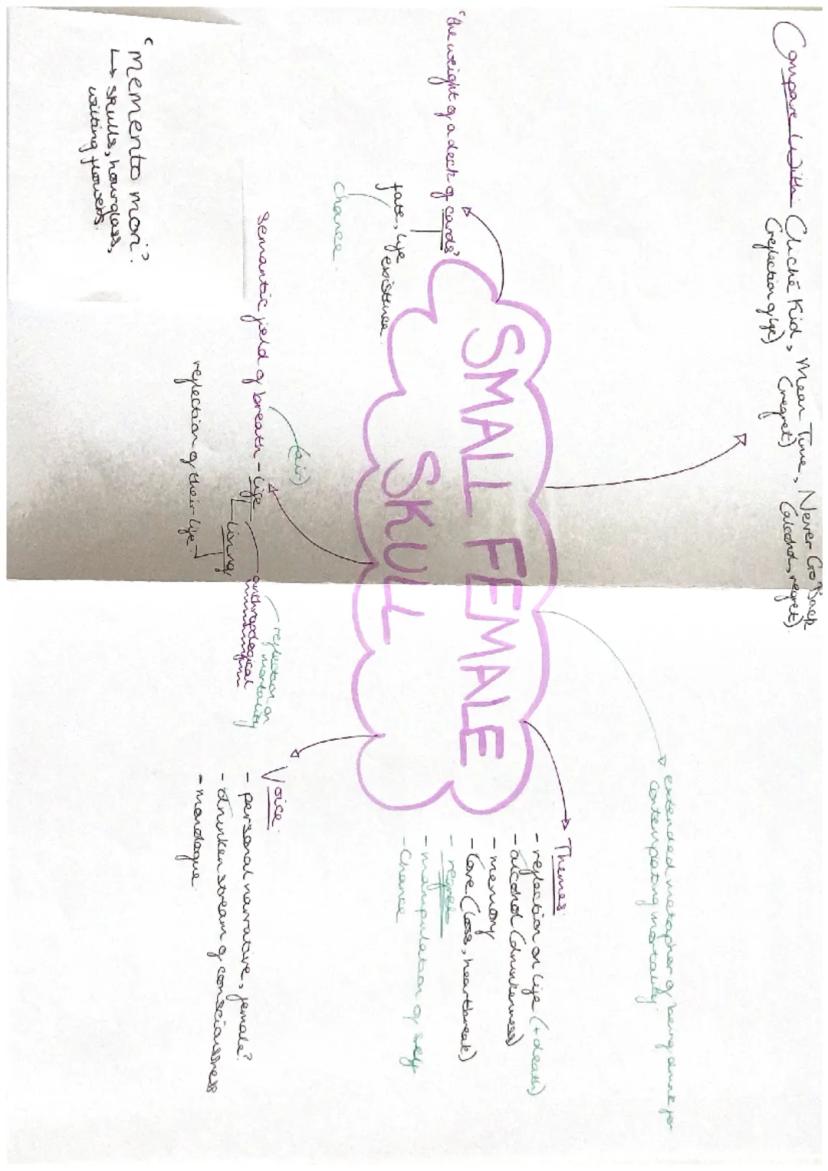 Compare With: Cliché Kid, Mean Time, Never Go Back
(reflection of life) (regret) (alcohol, regret).
"the weight of a deck of cards"
fate, life
existence
chance.
SMALL FEMALE
SKULL
extended metaphor of being drunk for
contemplating mortality.
Themes:
- reflection on life (+ death)
- alcohol (drunkenness)
- memory
- love (loss, heartbreak)
- regret
- manipulation of self
- Chance
Semantic field of breath - life
(air)
living
reflection of their life
anthropological
reflection on
mortality
Voice:
- personal narrative, female?
- drunken stream of consciousness
- monologue
'memento mori'?
↳ skulls, hourglass,
wilting flowers.